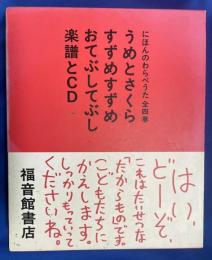 にほんのわらべうた 全四巻
うめとさくら
すずめすずめ
おてぶしてぶし
楽譜とCD
はい、
どーぞ、
これはたいせつな
「たからもの」です。
こどもたちに
かえします。
しっかりもっていて
くださいね。
福音館書店